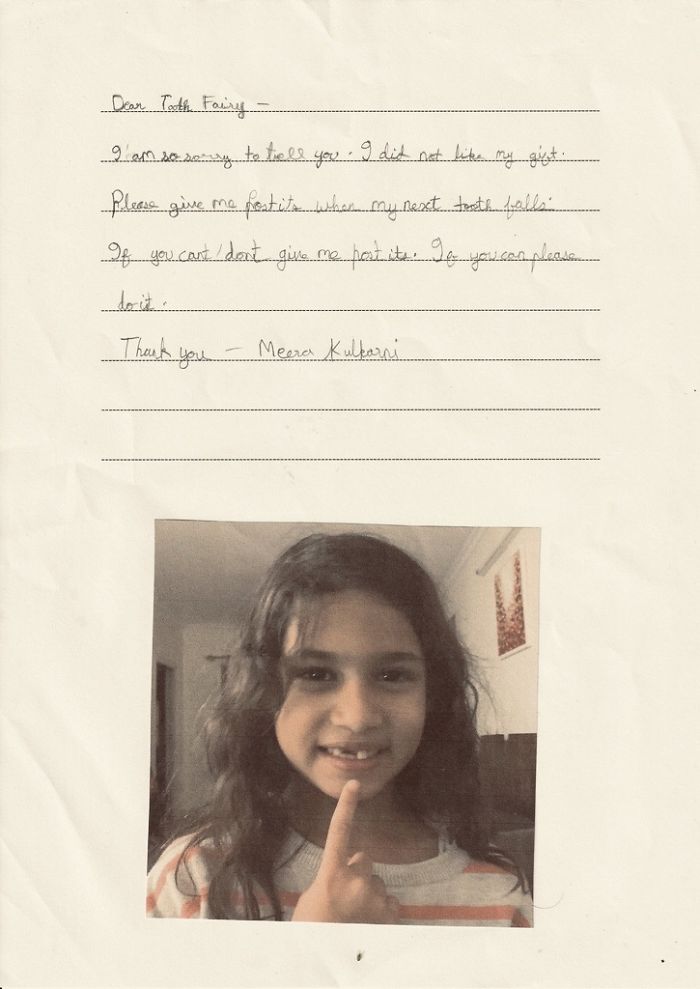 Dear Tooth Fairy —
I am so sorry to tell you. I did not like my gift.
Please give me postits when my next tooth falls.
If you cant/dont give me post its. If you can please
do it.
Thank you — Meera Kulkarni